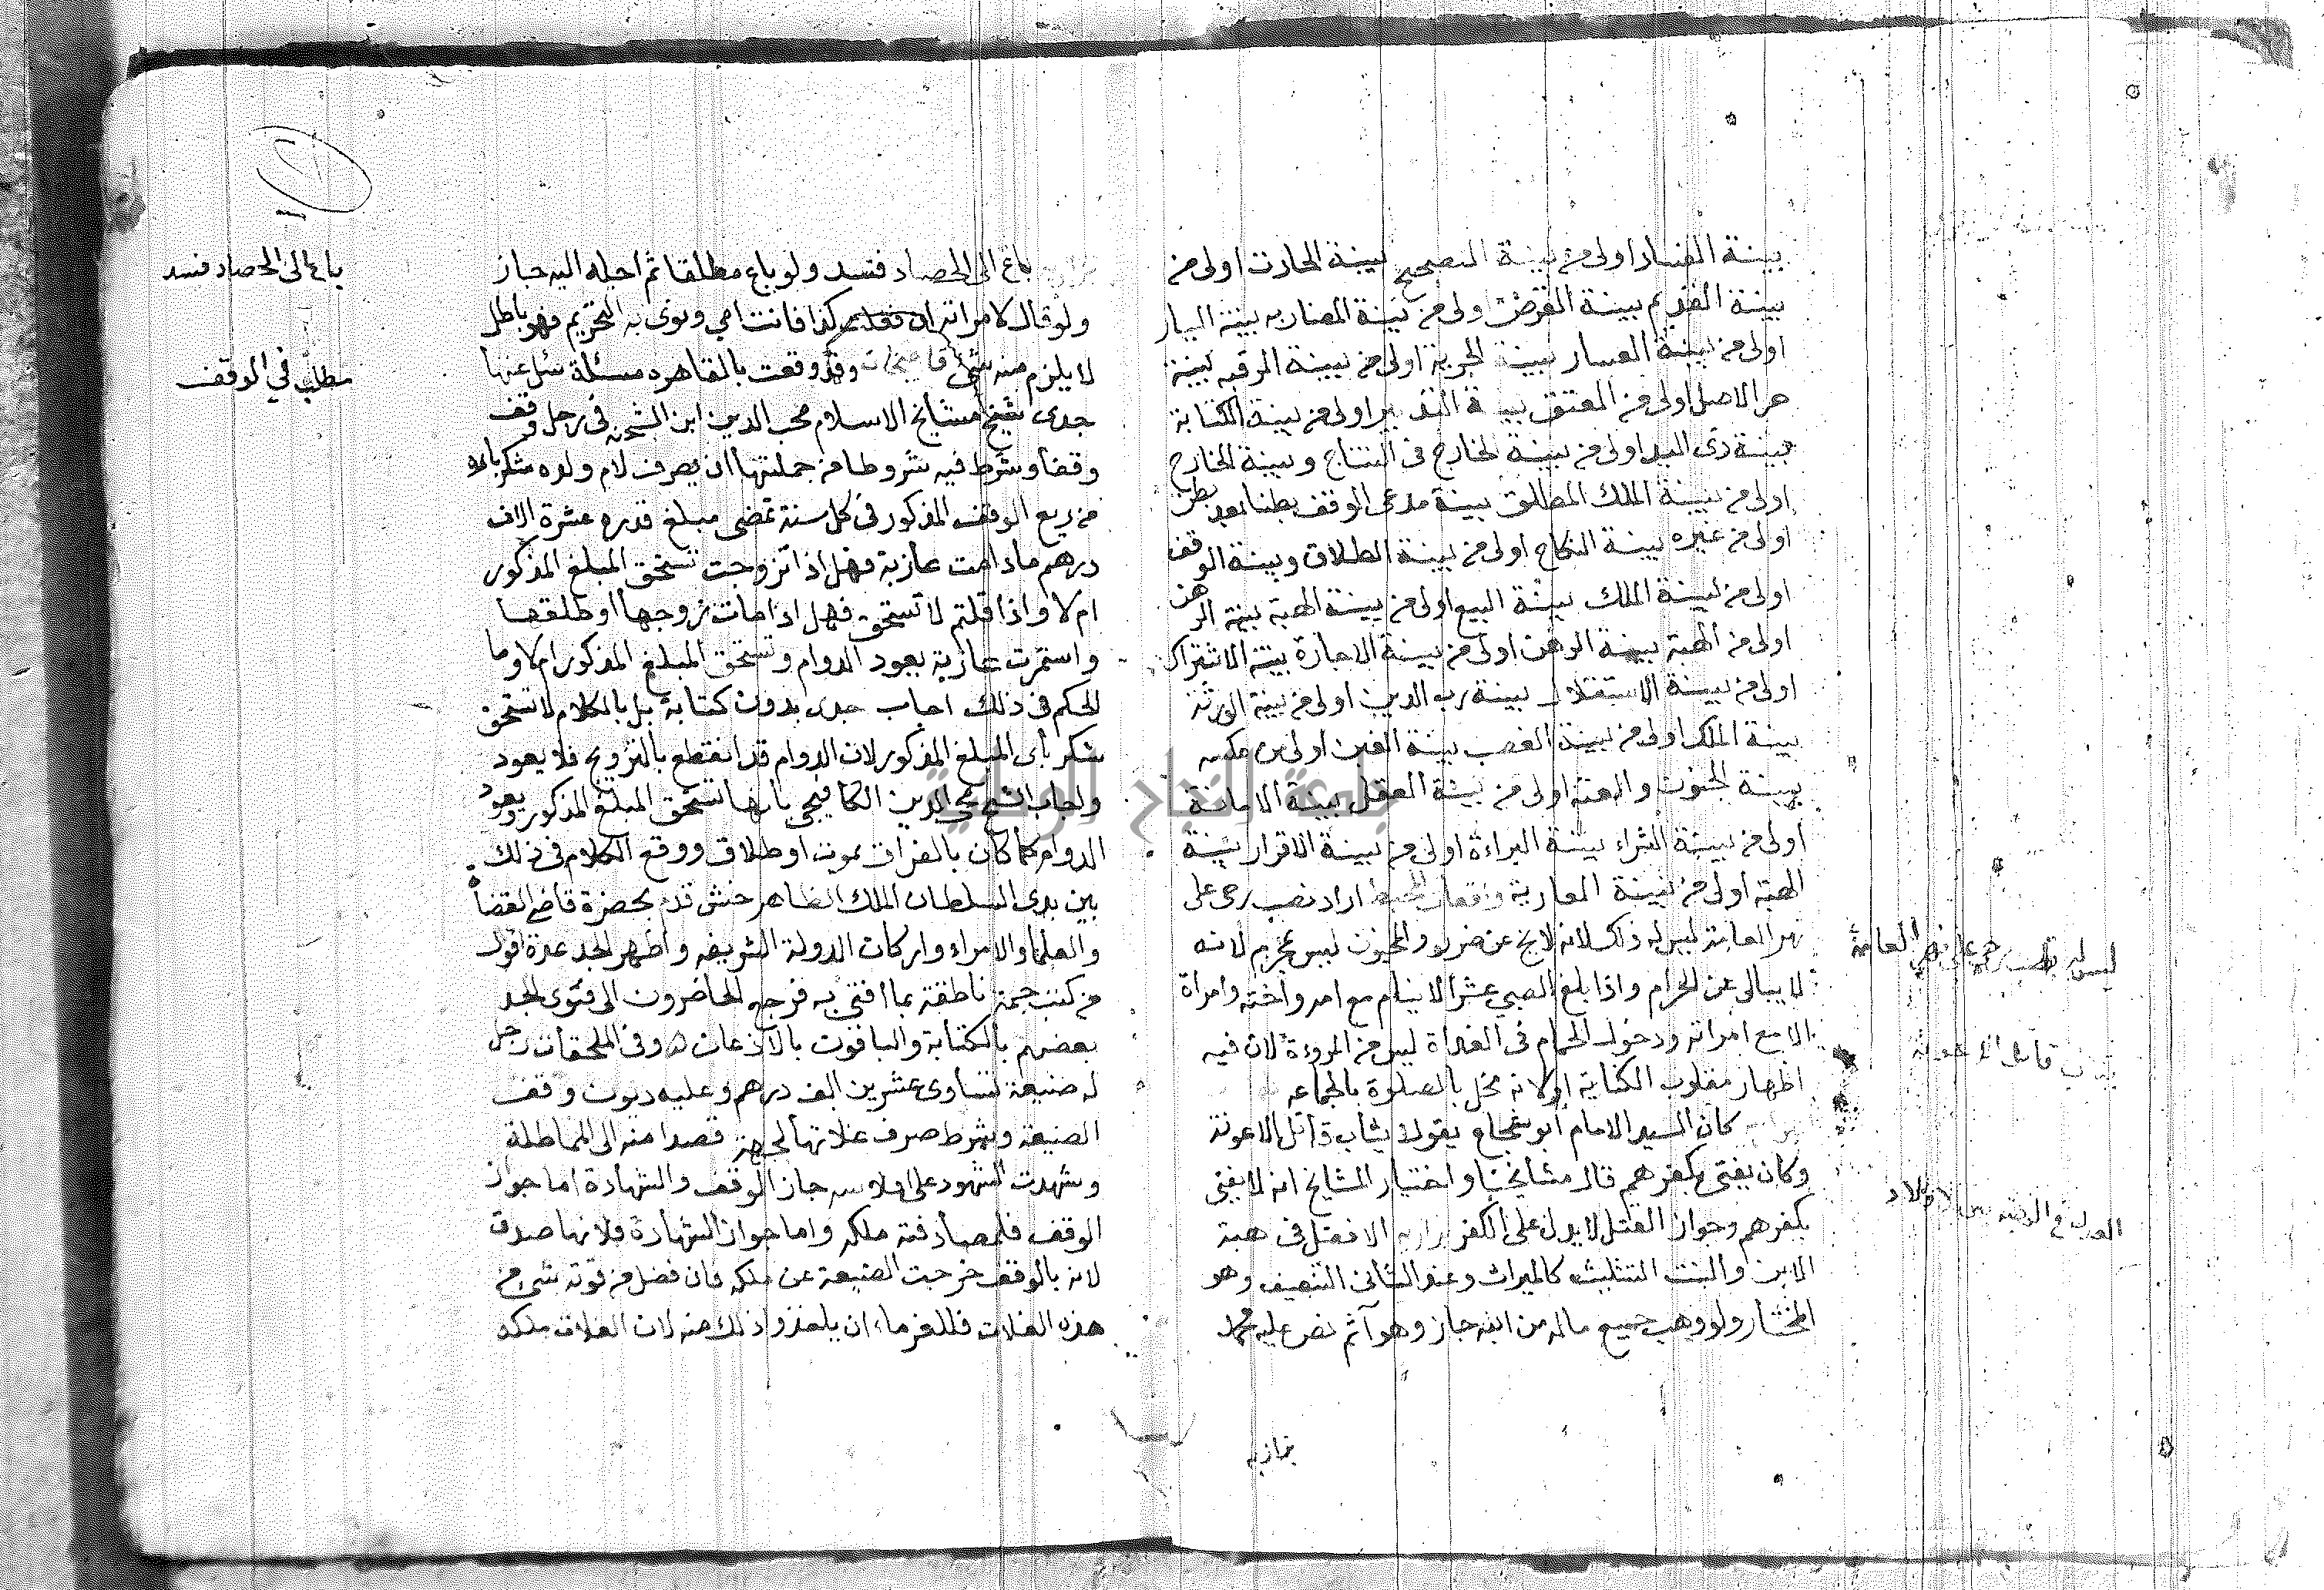 بينة الفساد اولى من بينة التصحيح بينة الحادث اولى من
بينة القديم بينة القرض اولى من بينة المضاربه بينة اليسار
اولى من بينة العسار بينة الحرية اولى من بينة الرقيه بينة
حر الاصل اولى من المعتق بينة التدبير اولى من بينة الكتابة
بينة ذى اليد اولى من بينة الخارج فى النتاج وبينة الخارج
اولى من بينة الملك المطلق بينة مدعى الوقف بطنا بعد بطن
اولى من غيره بينة النكاح اولى من بينة الطلاق وبينة الوقف
اولى من بينة الملك بينة البيع اولى من بينة الهبة بينة الرهن
اولى من الهبة بينة الرهن اولى من بينة الاجارة بينة الاشتراك
اولى من بينة الاستقلال بينة رب الدين اولى من بينة الورثة
بينة الملك اولى من بينة الغصب بينة الغبن اولى من عكسه
بينة الجنون والعته اولى من بينة العقل بينة الامانة
اولى من بينة الشراء بينة البراءة اولى من بينة الاقرار بينة
الهبة اولى من بينة العارية اراد نصب رحى على
نهر العامة ليس له ذلك لانه لا يخ عن ضرر والمجنون ليس بمحرم لانه
لا يبالى عن الحرام واذا بلغ الصبي عشرا لا ينام مع امه واخته وامراة
الا مع امراته ودخول الحمام فى الغداة ليس من المروءة لان فيه
اظهار مقلوب الكناية اولانه مخل بالصلوة بالجماعه
كان السيد الامام ابو شجاع يقول يثاب قاتل الاعونة
وكان يفتى بكفرهم قال مشايخنا واختيار المشايخ انه لا يفتى
بكفرهم وجواز القتل لا يدل على الكفر بزازيه الافضل فى هبة
الابن والبنت التثليث كالميراث وعند الثانى التنصيف وهو
المختار ولو وهب جميع ماله من ابنه جاز وهو آثم نص عليه محمد
بزازيه
ليس له نصب رحى على نهر العامة
يثاب قاتل الاعونة
باع الى الحصاد فسد ولو باع مطلقا ثم اجله اليه جاز
ولو قال لامراته ان فعلت كذا فانت امي ونوى به التحريم فهو باطل
لا يلزم منه شئ وقد وقعت بالقاهره مسئلة سئل عنها
جدى شيخ مشايخ الاسلام محب الدين ابن الشحنه فى رجل وقف
وقفا وشرط فيه شروطا من جملتها ان يصرف لام ولده شكرباى
من ريع الوقف المذكور فى كل سنة تمضى مبلغ قدره عشرة الاف
درهم ما دامت عازبة فهل اذا تزوجت تستحق المبلغ المذكور
ام لا واذا قلتم لا تستحق فهل اذا مات زوجها او طلقها
واستمرت عازبة يعود الدوام وتستحق المبلغ المذكور ام لا وما
الحكم فى ذلك اجاب جدى بدون كتابة بل بالكلام لا تستحق
شكرباى المبلغ المذكور لان الدوام قد انقطع بالتزويج فلا يعود
واجاب الشيخ محي الدين الكافيجي بانها تستحق المبلغ المذكور ويعود
الدوام كما كان بالفراق بموت او طلاق ووقع الكلام فى ذلك
بين يدى السلطان الملك الظاهر خشقدم بحضرة قاضى القضا
والعلما والامراء واركان الدولة الشريفه واظهر الجد عدة نقول
من كتب جمة ناطقة بما افتى به فرجع الحاضرون الى فتوى الجد
بعضهم بالكتابة والباقون بالاذعان وفى الملحقات رجل
له ضيعة تساوى عشرين الف درهم وعليه ديون وقف
الضيعة وشرط صرف غلاتها لجهة قصدا منه الى المماطلة
وشهدت الشهود على افلاسه جاز الوقف والشهادة اما جواز
الوقف فلمصادفته ملكه واما جواز الشهادة فلانها صدق
لانه بالوقف خرجت الضيعة عن ملكه فان فضل من قوته شى من
هذه الغلات فللغرماء ان ياخذوا ذلك منه لان الغلات ملكه
باع الى الحصاد فسد
مطلب في الوقف